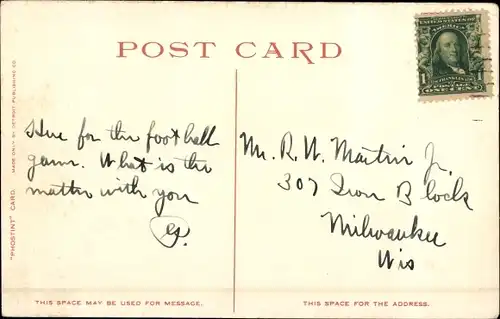 POST CARD
UNITED STATES OF
AMERICA
1 1
FRANKLIN
POSTAGE
ONE CENT
"PHOSTINT" CARD. MADE ONLY BY DETROIT PUBLISHING CO.
Here for the foot ball
game. What is the
matter with you
Mr. R. W. Martin Jr.
307 Iron Block
Milwaukee
Wis
THIS SPACE MAY BE USED FOR MESSAGE.
THIS SPACE FOR THE ADDRESS.